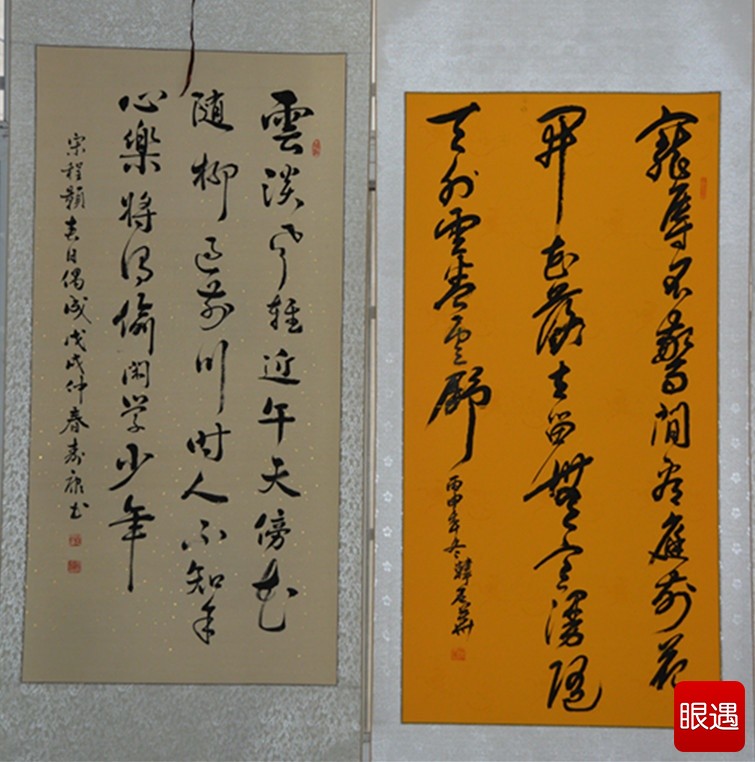 雲淡风輕近午天傍花
随柳过前川时人不知余
心樂将谓偷闲学少年
宋程顥春日偶成戊戌仲春寿康书
寵辱不驚閒看庭前花
开花落去留無意漫随
天外雲卷雲舒
丙申年冬韓
眼遇